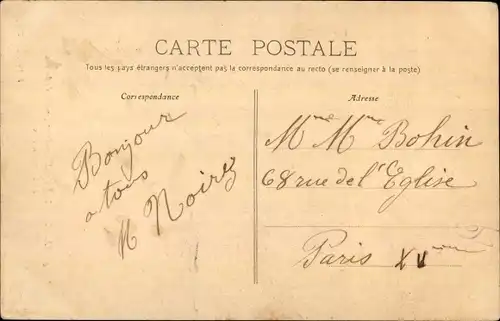 CARTE POSTALE
Tous les pays étrangers n'acceptent pas la correspondance au recto (se renseigner à la poste)
Correspondance
Adresse
Bonjour
a tous
M Noirez
Mme Mme Bohin
68 rue de l'Eglise
Paris XVme